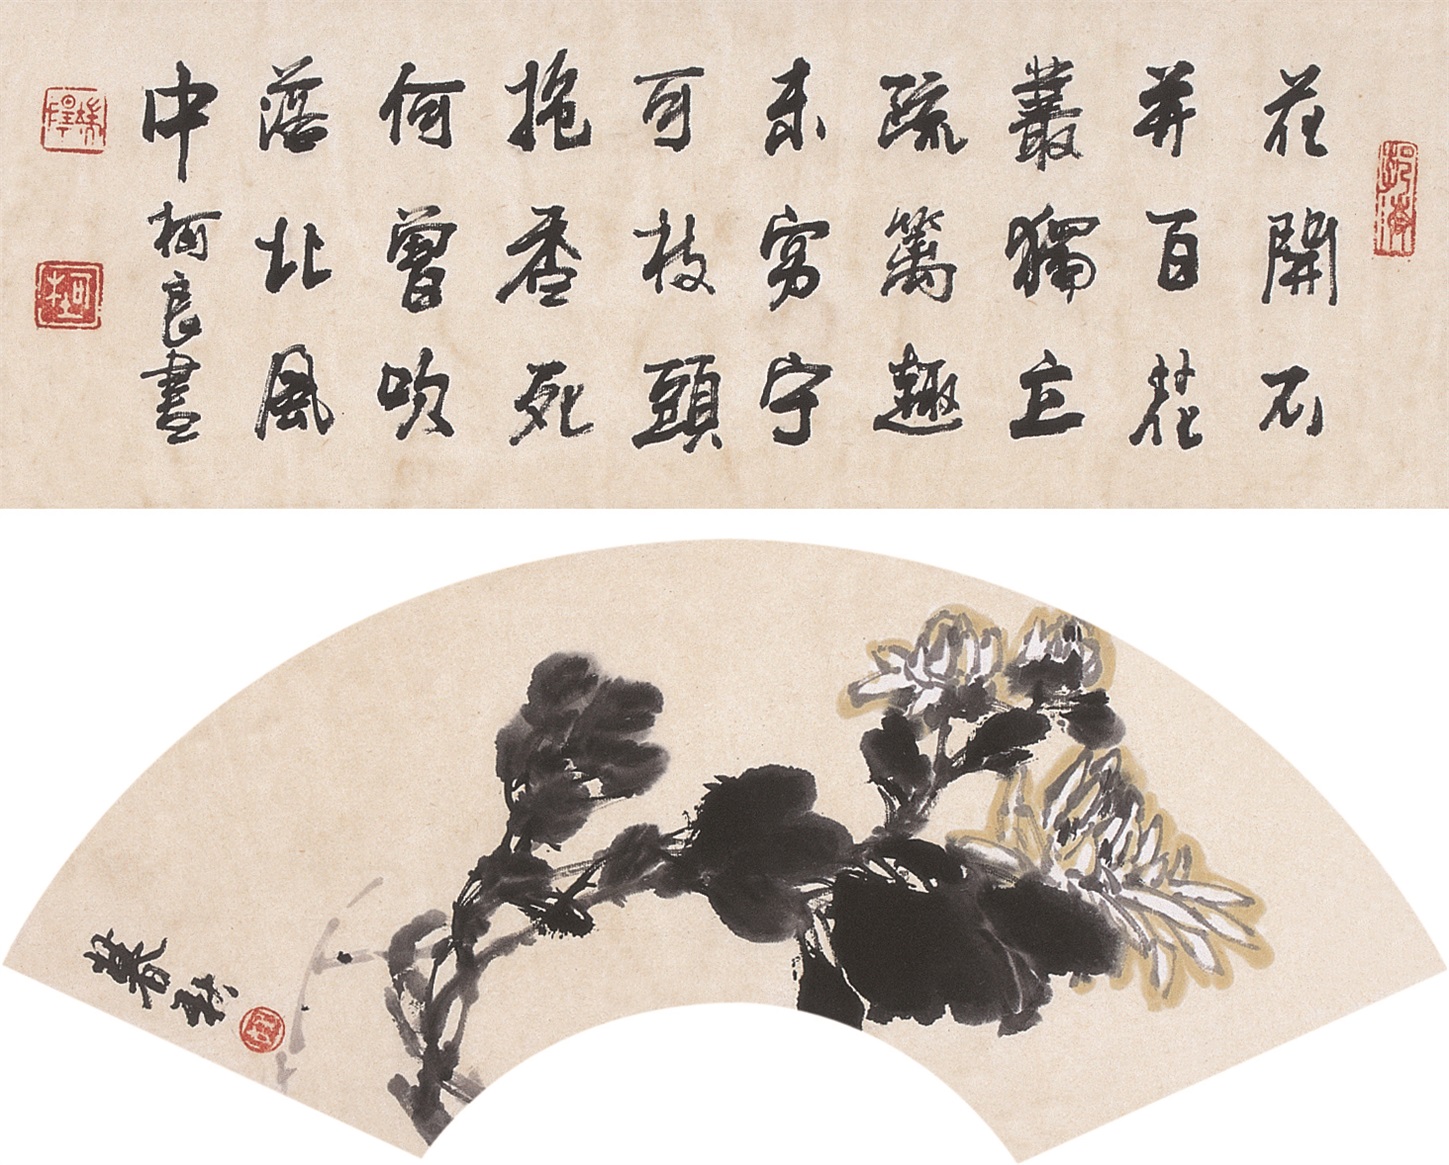 花開不
并百花
叢獨立
疏篱趣
未窮宁
可枝頭
抱香死
何曾吹
落北風
中柯良書